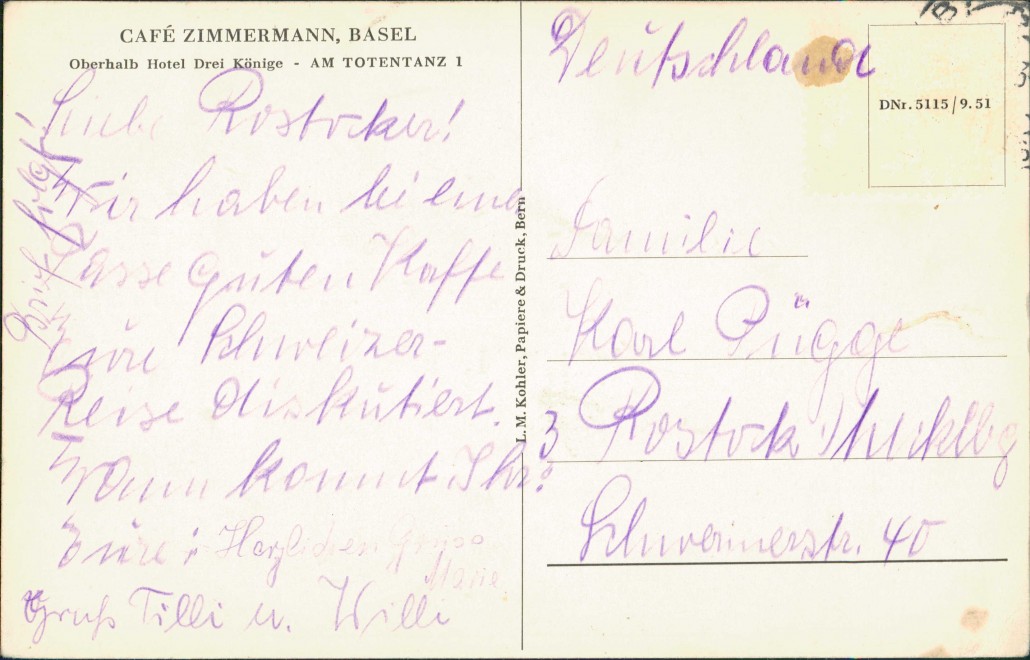 CAFÉ ZIMMERMANN, BASEL
Oberhalb Hotel Drei Könige - AM TOTENTANZ 1
Liebe Rostocker!
Wir haben bei einer
Tasse guten Kaffe
Eure Schweizer-
Reise diskutiert.
Wann kommt Ihr?
Eure: Herzlichen Gruss
Marie
Gruß Tilli u. Willi
Brief folgt!
L. M. Kohler, Papiere & Druck, Bern
Deutschland
DNr. 5115/9.51
Familie
Karl Pügge
3 Rostock i/Mecklbg
Schwerinerstr. 40